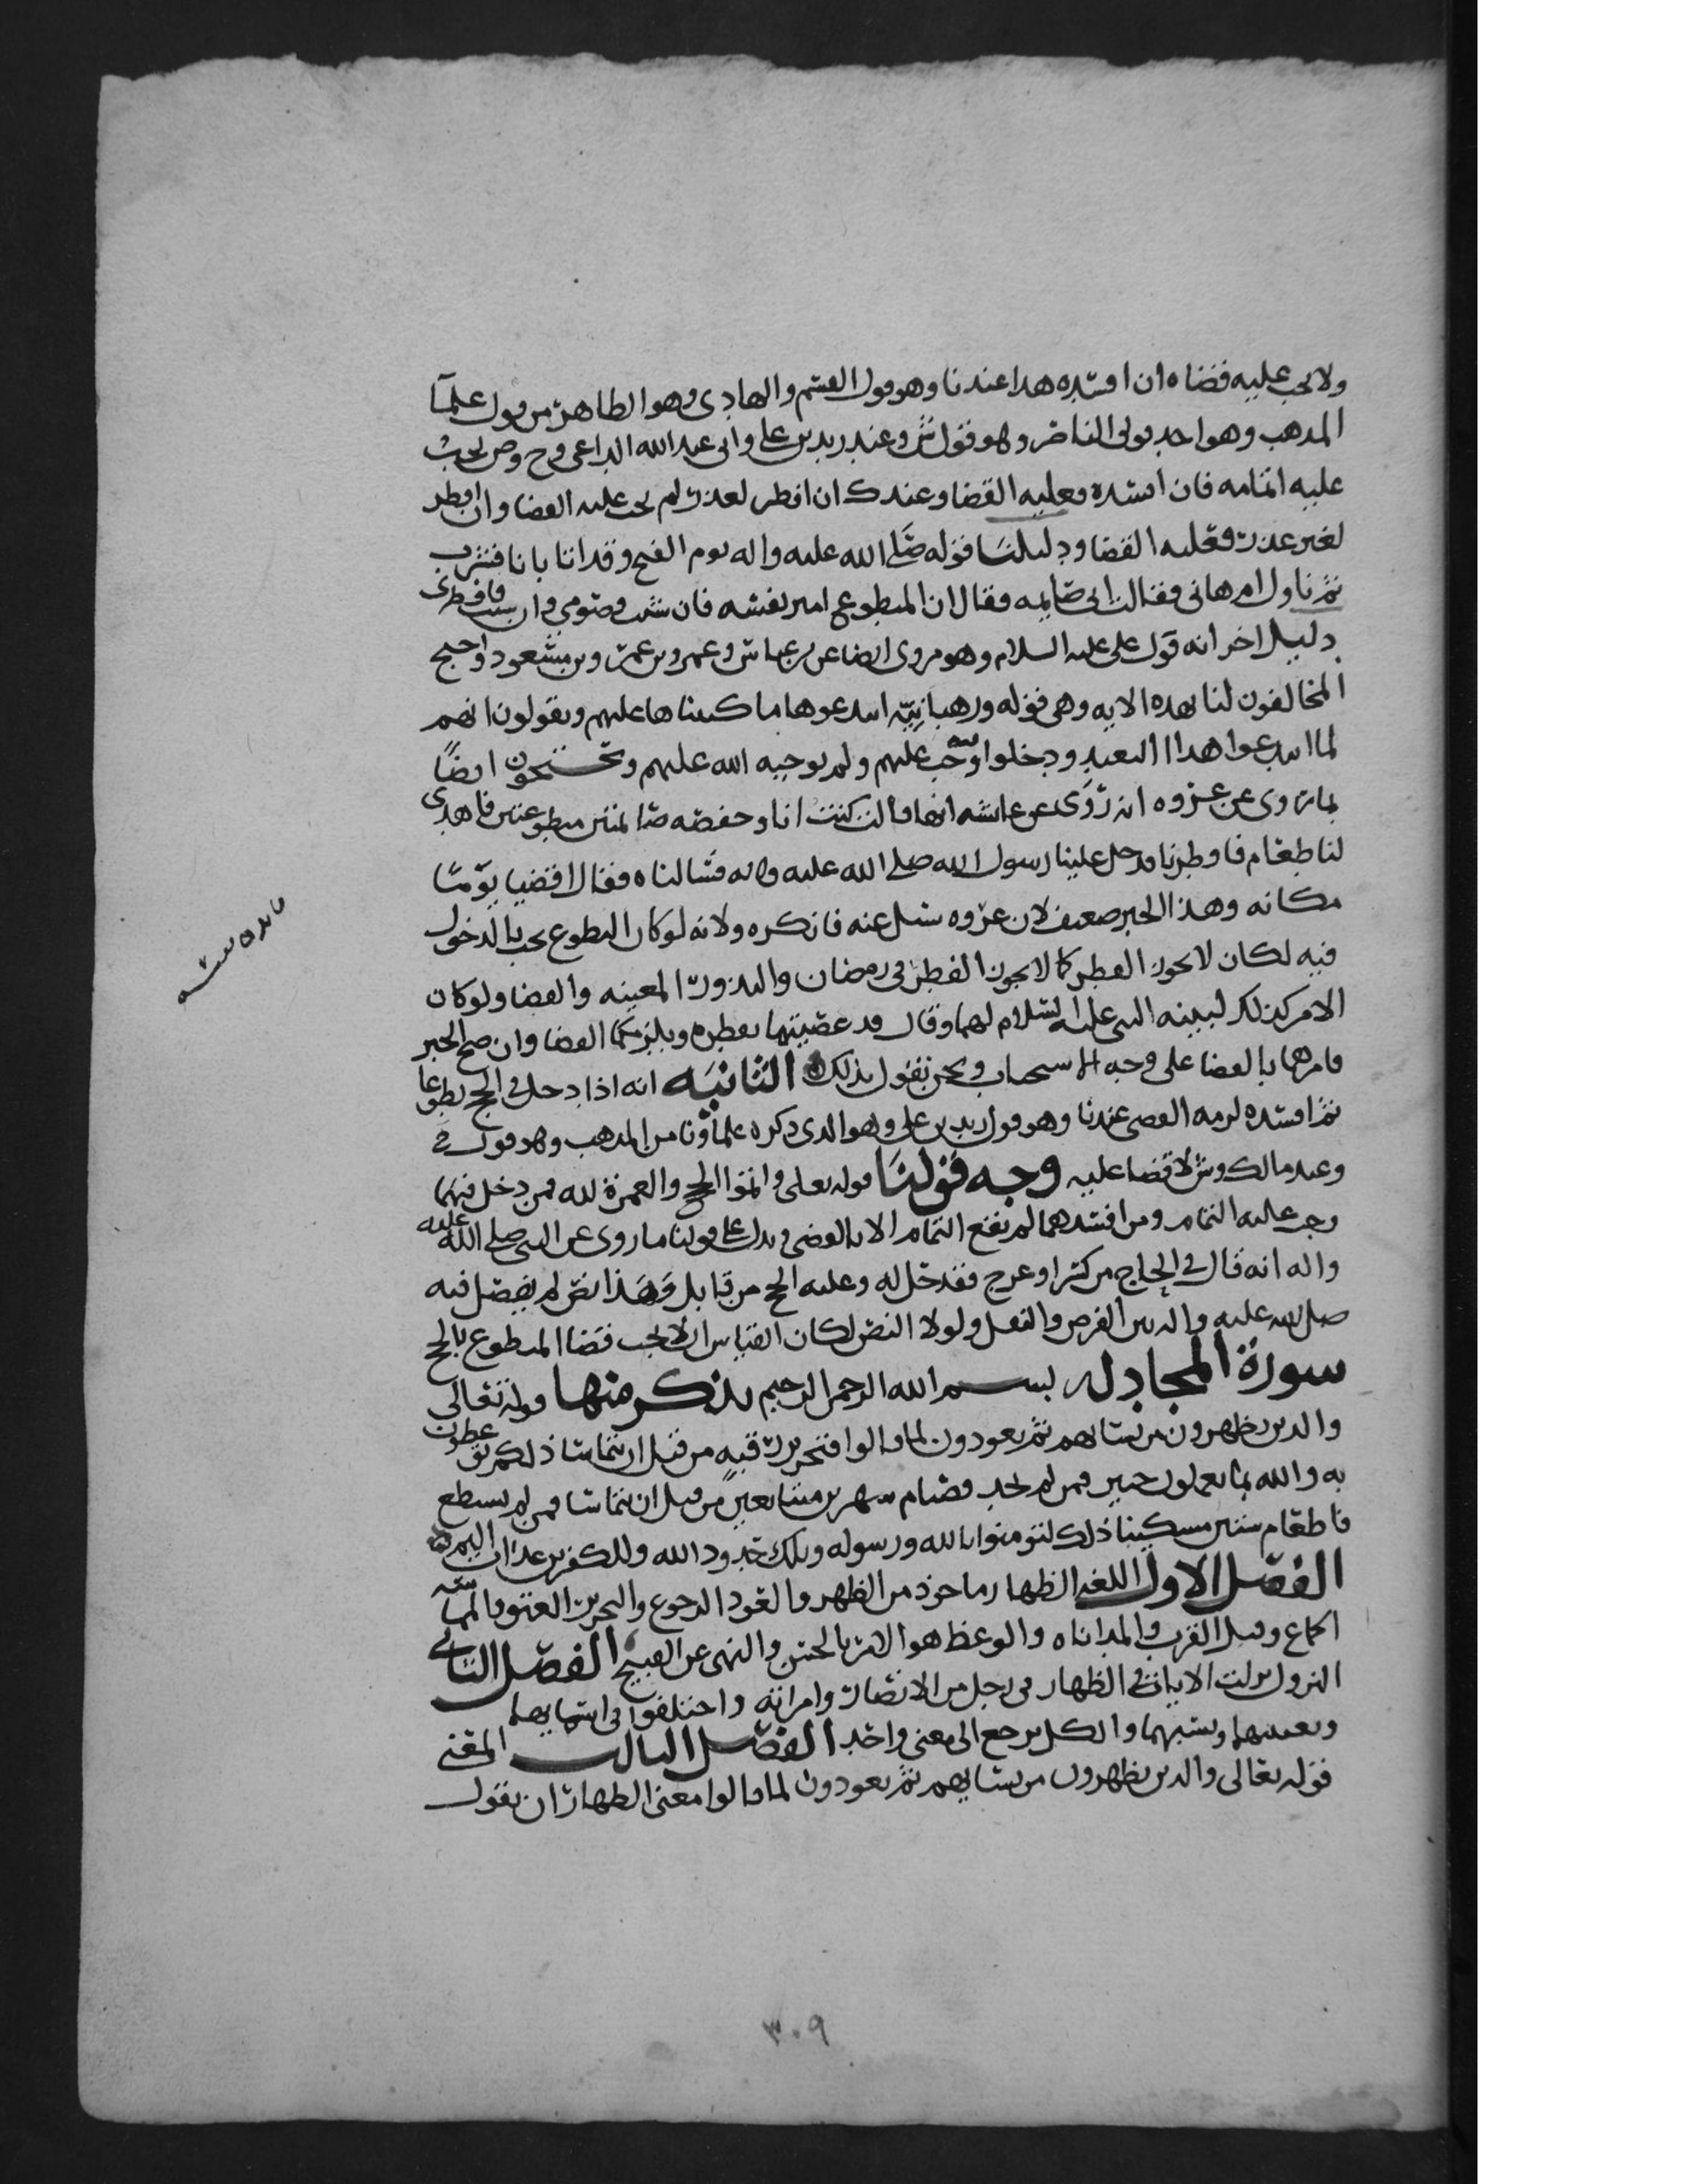 ولا يجب عليه قضاه ان افسده هذا عندنا وهو قول القسم والهادي وهو الظاهر من قول علمآ
المذهب وهو احد قولي الناصر وهو قول ش وعند زيد بن علي وابي عبد الله الداعي وح وص يجب
عليه اتمامه فان افسده فعليه القضا وعند ك ان افطر لعذر لم يجب عليه القضا وان افطر
لغير عذر فعليه القضا ودليلنا قوله صلى الله عليه واله يوم الفتح وقد اتا بانا فشرب
ثم ناول ام هاني فقالت اني صايمه فقال ان المتطوع امير نفسه فان شيت فصومي وان شيت فافطري
دليل اخر انه قول علي عليه السلام وهو مروي ايضا عن بن عباس وعمر وبن عمر وبن مسعود واحتج
المخالفون لنا بهذه الايه وهي قوله ورهبانيّه ابتدعوها ما كتبناها عليهم ويقولون انهم
لما ابتدعوا هذا التعبد ودخلوا فيه وجب عليهم ولم يوجبه الله عليهم ويحتجون ايضًا
بما روي عن عروه انه روى عن عايشه انها قالت كنت انا وحفصه صايمتين متطوعتين فاهدي
لنا طعام فافطرنا فدخل علينا رسول الله صلى الله عليه واله فسالناه فقال اقضيا يومًا
مكانه وهذا الخبر ضعيف لان عروه سيل عنه فانكره ولانه لو كان التطوع يجب بالدخول
فيه لكان لا يجوز الفطر كما لا يجوز الفطر في رمضان والنذور المعينه والقضا ولو كان
الامر كذلك لبينه النبي عليه السلام لهما وقال قد عصيتما بفطره ويلزمكما القضا وان صح الخبر
فامرهما بالقضا على وجه الاستحباب ونحن نقول بذلك الثانيه انه اذا دخل في الحج تطوعا
ثم افسده لزمه القضى عندنا وهو قول زيد بن علي وهو الذي ذكره علماونا من المذهب وهو قول ح
وعند مالك وش لا قضا عليه وجه قولنا قوله تعالى واتموا الحج والعمرة لله فمن دخل فيهما
وجب عليه التمام ومن افسدهما لم يقع التمام الا بالقضى ويدل على قولنا ما روي عن النبي صلى الله عليه
واله انه قال في الحاج من كسر او عرج فقد حل له وعليه الحج من قابل وهذا نص لم يفصل فيه
صلى الله عليه واله بين الفرض والنفل ولولا النص لكان القياس ان لا يجب قضا المتطوع بالحج
سورة المجادله بسم الله الرحمن الرحيم يذكر منها قوله تعالى
والذين يظهرون من نسايهم ثم يعودون لما قالوا فتحرير رقبةٍ من قبل ان يتماسا ذلكم توعظون
به والله بما تعملون خبير فمن لم يجد فصيام شهرين متتابعين من قبل ان يتماسا فمن لم يستطع
فاطعام ستين مسكينا ذلك لتومنوا بالله ورسوله وتلك حدود الله وللكفرين عذاب اليم
الفصل الاول اللغه الظهار ماخوذ من الظهر والعود الرجوع والتحرير العتق والمماسّه
الجماع وقيل القرب والمداناه والوعظ هو الامر بالحسن والنهي عن القبيح الفصل الثاني
النزول نزلت الايات في الظهار في رجل من الانصار وامراته واختلفوا في اسمايهما
وتعيينهما ونسبهما والكل يرجع الى معنى واحد الفصل الثالث المعنى
قوله تعالى والذين يظهرون من نسايهم ثم يعودون لما قالوا معنى الظهار ان يقول
٣٠٩